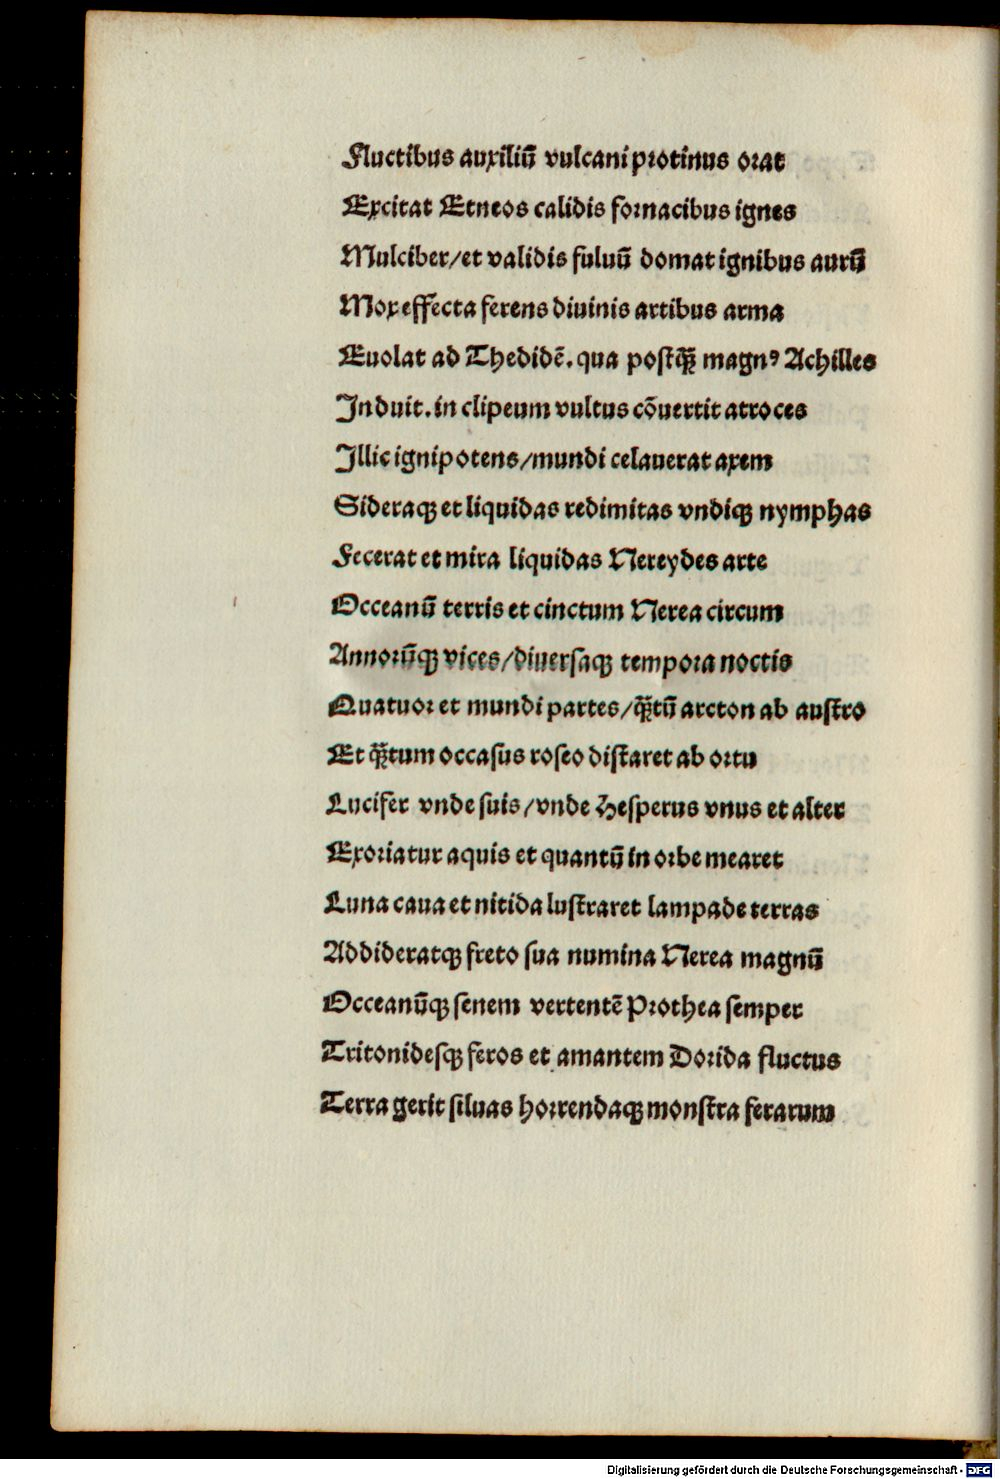 Fluctibus auxiliū vulcani protinus orat
Excitat Etneos calidis fornacibus ignes
Mulciber/et validis fuluū domat ignibus aurū
Mox effecta ferens diuinis artibus arma
Euolat ad Thedidē. qua postꝙ̄ magnꝰ Achilles
Induit. in clipeum vultus cōuertit atroces
Illic ignipotens/mundi celauerat axem
Sideraqꝫ et liquidas redimitas vndiqꝫ nymphas
Fecerat et mira liquidas Nereydes arte
Occeanū terris et cinctum Nerea circum
Annorūqꝫ vices/diuersaqꝫ tempora noctis
Quatuor et mundi partes/ꝙ̄tū arcton ab austro
Et ꝙ̄tum occasus roseo distaret ab ortu
Lucifer vnde suis/vnde Hesperus vnus et alter
Exoriatur aquis et quantū in orbe mearet
Luna caua et nitida lustraret lampade terras
Addideratqꝫ freto sua numina Nerea magnū
Occeanūqꝫ senem vertentē Prothea semper
Tritonidesqꝫ feros et amantem Dorida fluctus
Terra gerit siluas horrendaqꝫ monstra ferarum
Digitalisierung gefördert durch die Deutsche Forschungsgemeinschaft - DFG